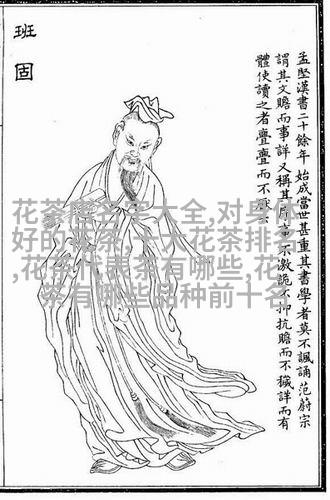 孟堅漢書二十餘年始成當世甚重其書學者莫不諷誦范蔚宗
謂其文贍而事詳又稱其序事不激詭不抑抗贍而不穢詳而有
體使讀之者亹亹而不
班固
花茶的名字大全,对身体
好的花茶,十大花茶排名
,花茶代表茶有哪些,花
茶有哪些品种前十名